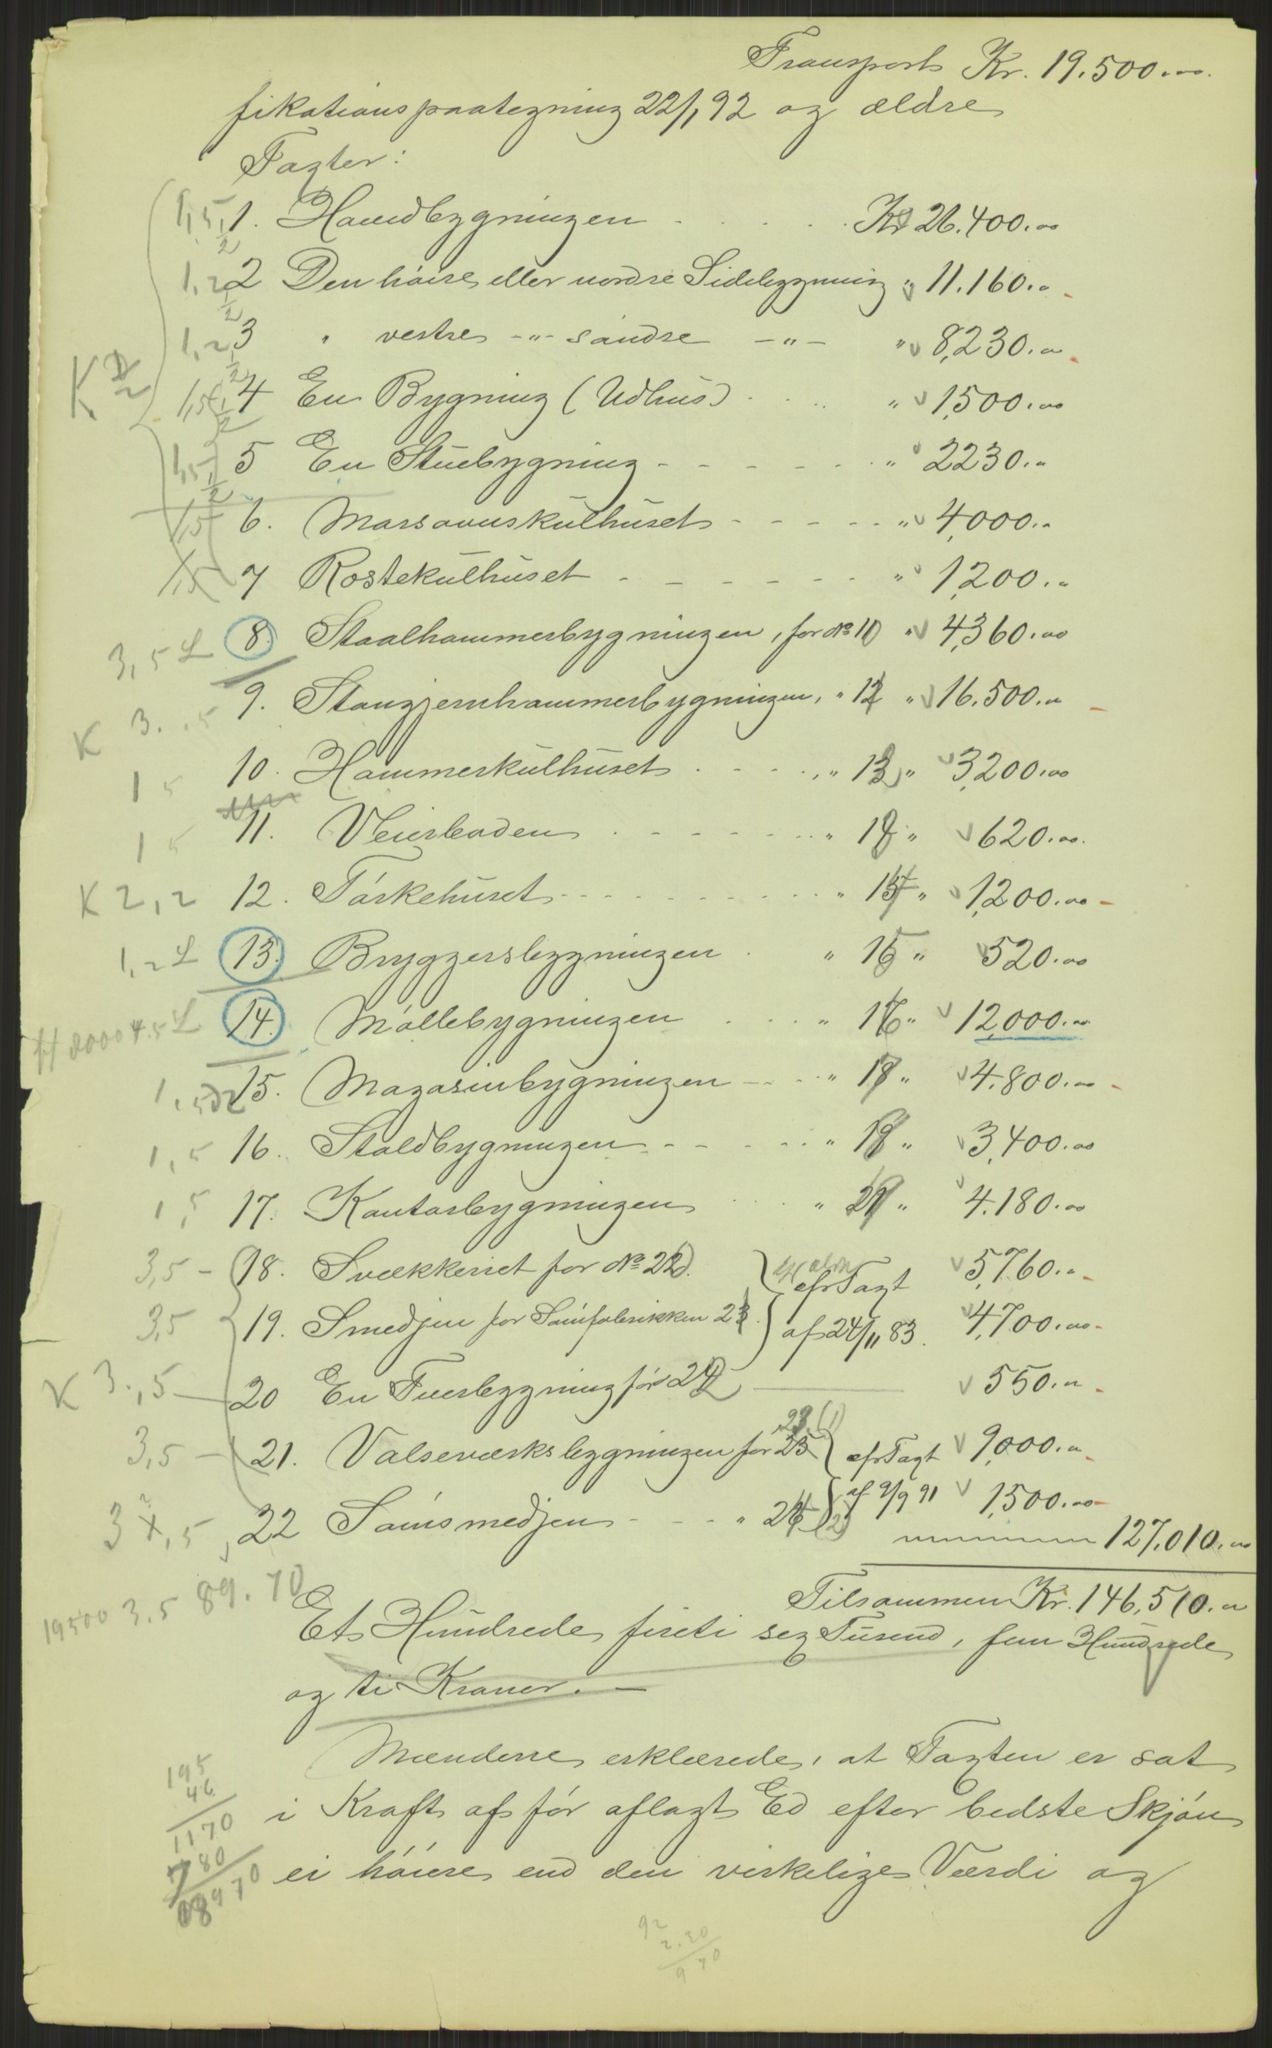 Transport Kr. 19.500.00
fikationspaategning 22/1 92 og ældre
Taxter:
1. Hovedbygningen Kr 26.400.00
2 Den høire eller nordre Sidebygning " 11.160.00
3 " vestre -"- søndre -"- " 8,230.00
4 En Bygning (Udhus) " 1,500.00
5 En Stuebygning " 2230.00
6. Marsovnskulhuset " 4,000.00
7 Rostekulhuset " 1,200.00
8. Staalhammerbygningen, før No 11) " 4,360.00
9. Stangjernhammerbygningen, " 12 " 16.500.00
10. Hammerkulhuset " 13 " 3,200.00
11. Veierboden " " 620.00
12. Tørkehuset " " 1,200.00
13. Bryggersbygningen " " 520.00
14. Møllebygningen " " 12,000.00
15. Magasinbygningen " " 4.800.00
16. Staldbygningen " " 3,400.00
17. Kontorbygningen " " 4.180.00
18. Svækkeriet før No 22). efr Taxt 5,760.00
19. Smedjen for Sømfabrikken 23 af 24/11 83. 4,700.00
20 En Fuerbygning før 550.00
21. Valseværksbygningen før 25 efr Taxt 9,000.00
22 Sømsmedjen " af 9/9 91 1,500.00
127,010.00
Tilsammen Kr. 146,510.00
Et Hundrede firti sex Tusend, fem Hundrede
og ti Kroner. —
Mændene erklærede, at Taxten er sat
i Kraft af før aflagt Ed efter bedste Skjøn
ei høiere end den virkelige Værdi og
K
1,5
1,2
1,2
1,5
1,5
1,5
1,5
3,5 L
K 3. .5
1 5
1 5
K 2,2
1,2 L
4.5 L
1,5
1,5
3,5 —
3,5
K 3.,5 —
3,5 —
19500 3.5 89.70
195
46
1170
780
8970